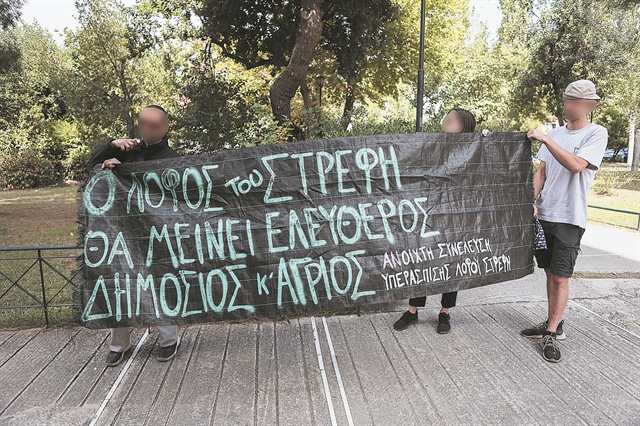 Ο ΛΟΦΟΣ ΤΟΥ ΣΤΡΕΦΗ
ΘΑ ΜΕΙΝΕΙ ΕΛΕΥΘΕΡΟΣ
ΔΗΜΟΣΙΟΣ Κ' ΑΓΡΙΟΣ
ΑΝΟΙΧΤΗ ΣΥΝΕΛΕΥΣΗ
ΥΠΕΡΑΣΠΙΣΗΣ ΛΟΦΟΥ ΣΤΡΕΦΗ